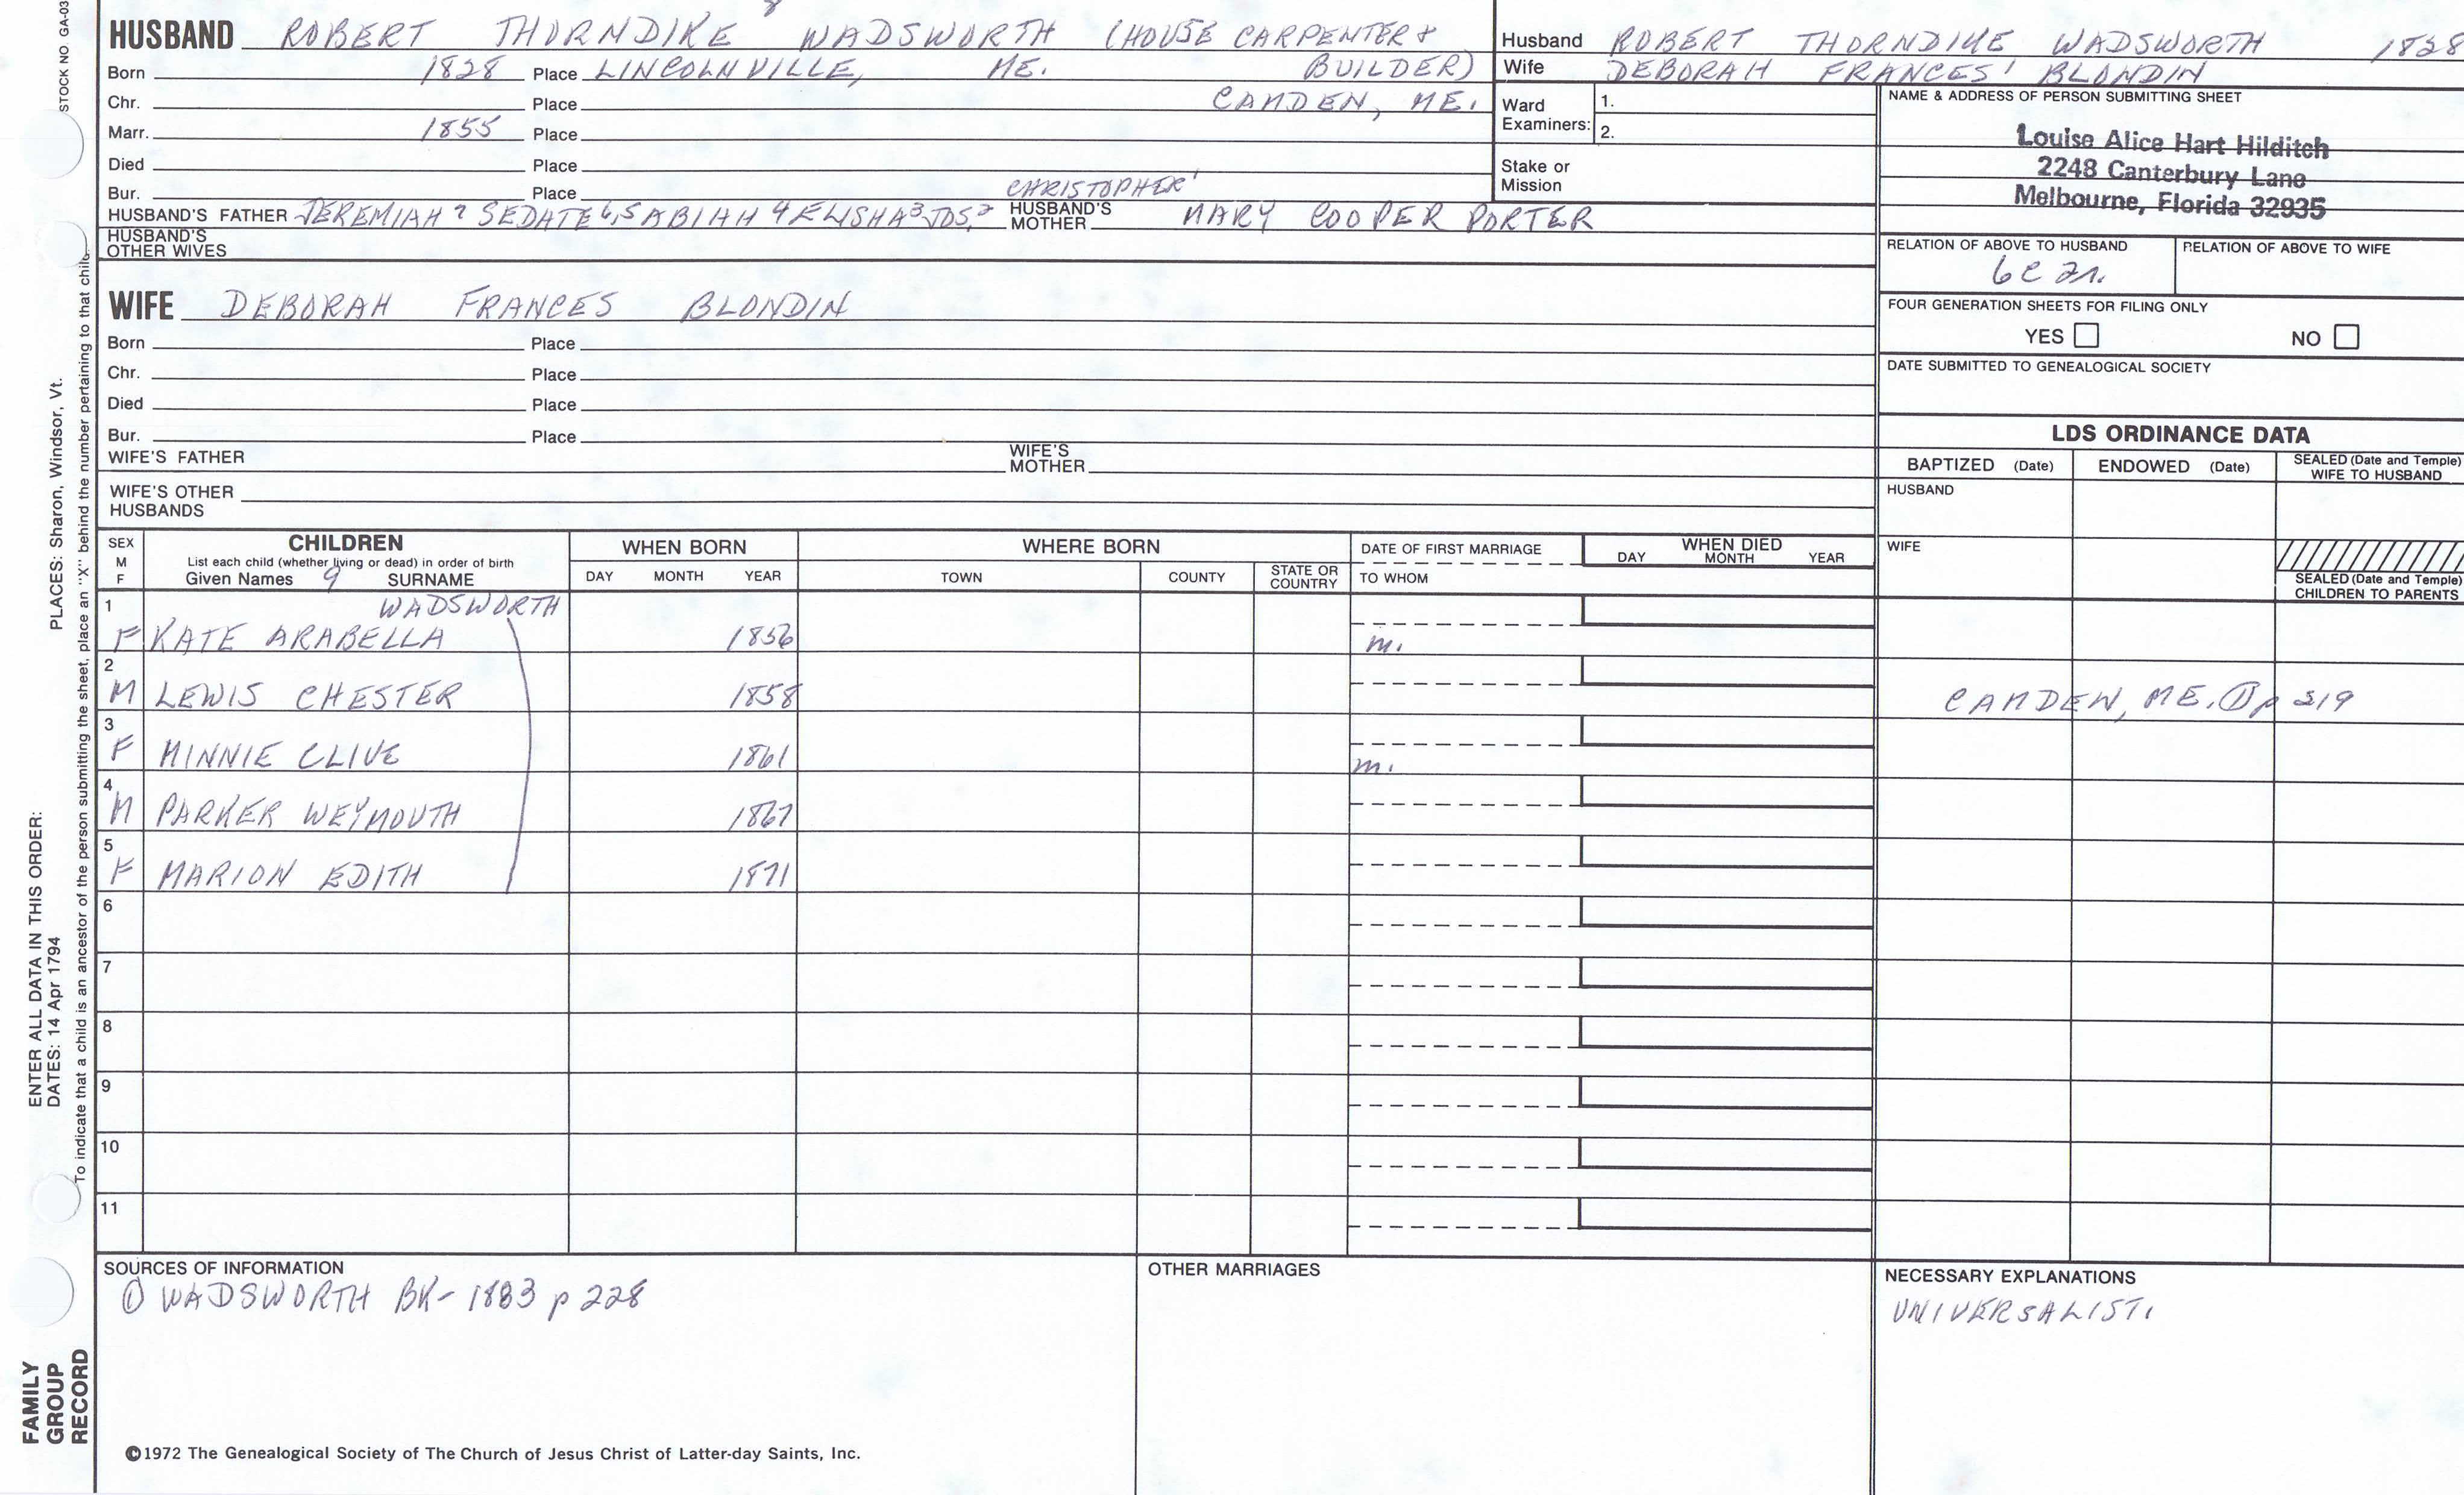 STOCK NO GA-03
8
HUSBAND ROBERT THORNDIKE WADSWORTH (HOUSE CARPENTER &
Born 1828 Place LINCOLNVILLE, ME. BUILDER)
Chr. Place CAMDEN, ME.
Marr. 1855 Place
Died Place
Bur. Place CHRISTOPHER 1
HUSBAND'S FATHER JEREMIAH 7 SEDATE 6, 5 ABIAH 4 ELISHA 3 JOS. 2 HUSBAND'S MOTHER MARY COOPER PORTER
HUSBAND'S OTHER WIVES
Husband ROBERT THORNDIKE WADSWORTH 1828
Wife DEBORAH FRANCES BLONDIN
Ward Examiners: 1.
2.
Stake or Mission
NAME & ADDRESS OF PERSON SUBMITTING SHEET
Louise Alice Hart Hilditch
2248 Canterbury Lane
Melbourne, Florida 32935
RELATION OF ABOVE TO HUSBAND RELATION OF ABOVE TO WIFE
6C 2r.
FOUR GENERATION SHEETS FOR FILING ONLY
YES NO
DATE SUBMITTED TO GENEALOGICAL SOCIETY
WIFE DEBORAH FRANCES BLONDIN
Born Place
Chr. Place
Died Place
Bur. Place
WIFE'S FATHER WIFE'S MOTHER
WIFE'S OTHER HUSBANDS
LDS ORDINANCE DATA
BAPTIZED (Date) ENDOWED (Date) SEALED (Date and Temple) WIFE TO HUSBAND
HUSBAND
WIFE
SEALED (Date and Temple) CHILDREN TO PARENTS
SEX M F
CHILDREN
List each child (whether living or dead) in order of birth
Given Names 9 SURNAME
WHEN BORN
DAY MONTH YEAR
WHERE BORN
TOWN COUNTY STATE OR COUNTRY
DATE OF FIRST MARRIAGE
TO WHOM
WHEN DIED
DAY MONTH YEAR
1 WADSWORTH
F KATE ARABELLA 1856 m.
2
M LEWIS CHESTER 1858 CAMDEN, ME. ① p 219
3
F MINNIE CLIVE 1861 m.
4
M PARKER WEYMOUTH 1867
5
F MARION EDITH 1871
6
7
8
9
10
11
SOURCES OF INFORMATION
① WADSWORTH BK- 1883 p 228
OTHER MARRIAGES
NECESSARY EXPLANATIONS
UNIVERSALIST.
©1972 The Genealogical Society of The Church of Jesus Christ of Latter-day Saints, Inc.
FAMILY GROUP RECORD
ENTER ALL DATA IN THIS ORDER:
DATES: 14 Apr 1794 PLACES: Sharon, Windsor, Vt.
To indicate that a child is an ancestor of the person submitting the sheet, place an "X" behind the number pertaining to that child.